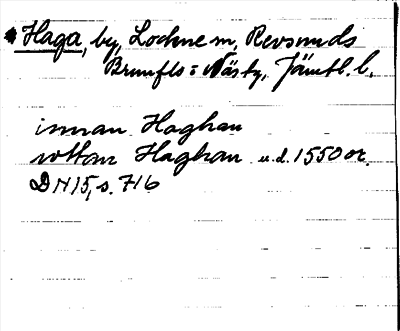 Haga, by, Lockne sn, Revsunds
Brunflo o Näsby, Jämtl. l.
innan Haghan
vttan Haghan u.d. 1550 or.
DN 15, s. 716